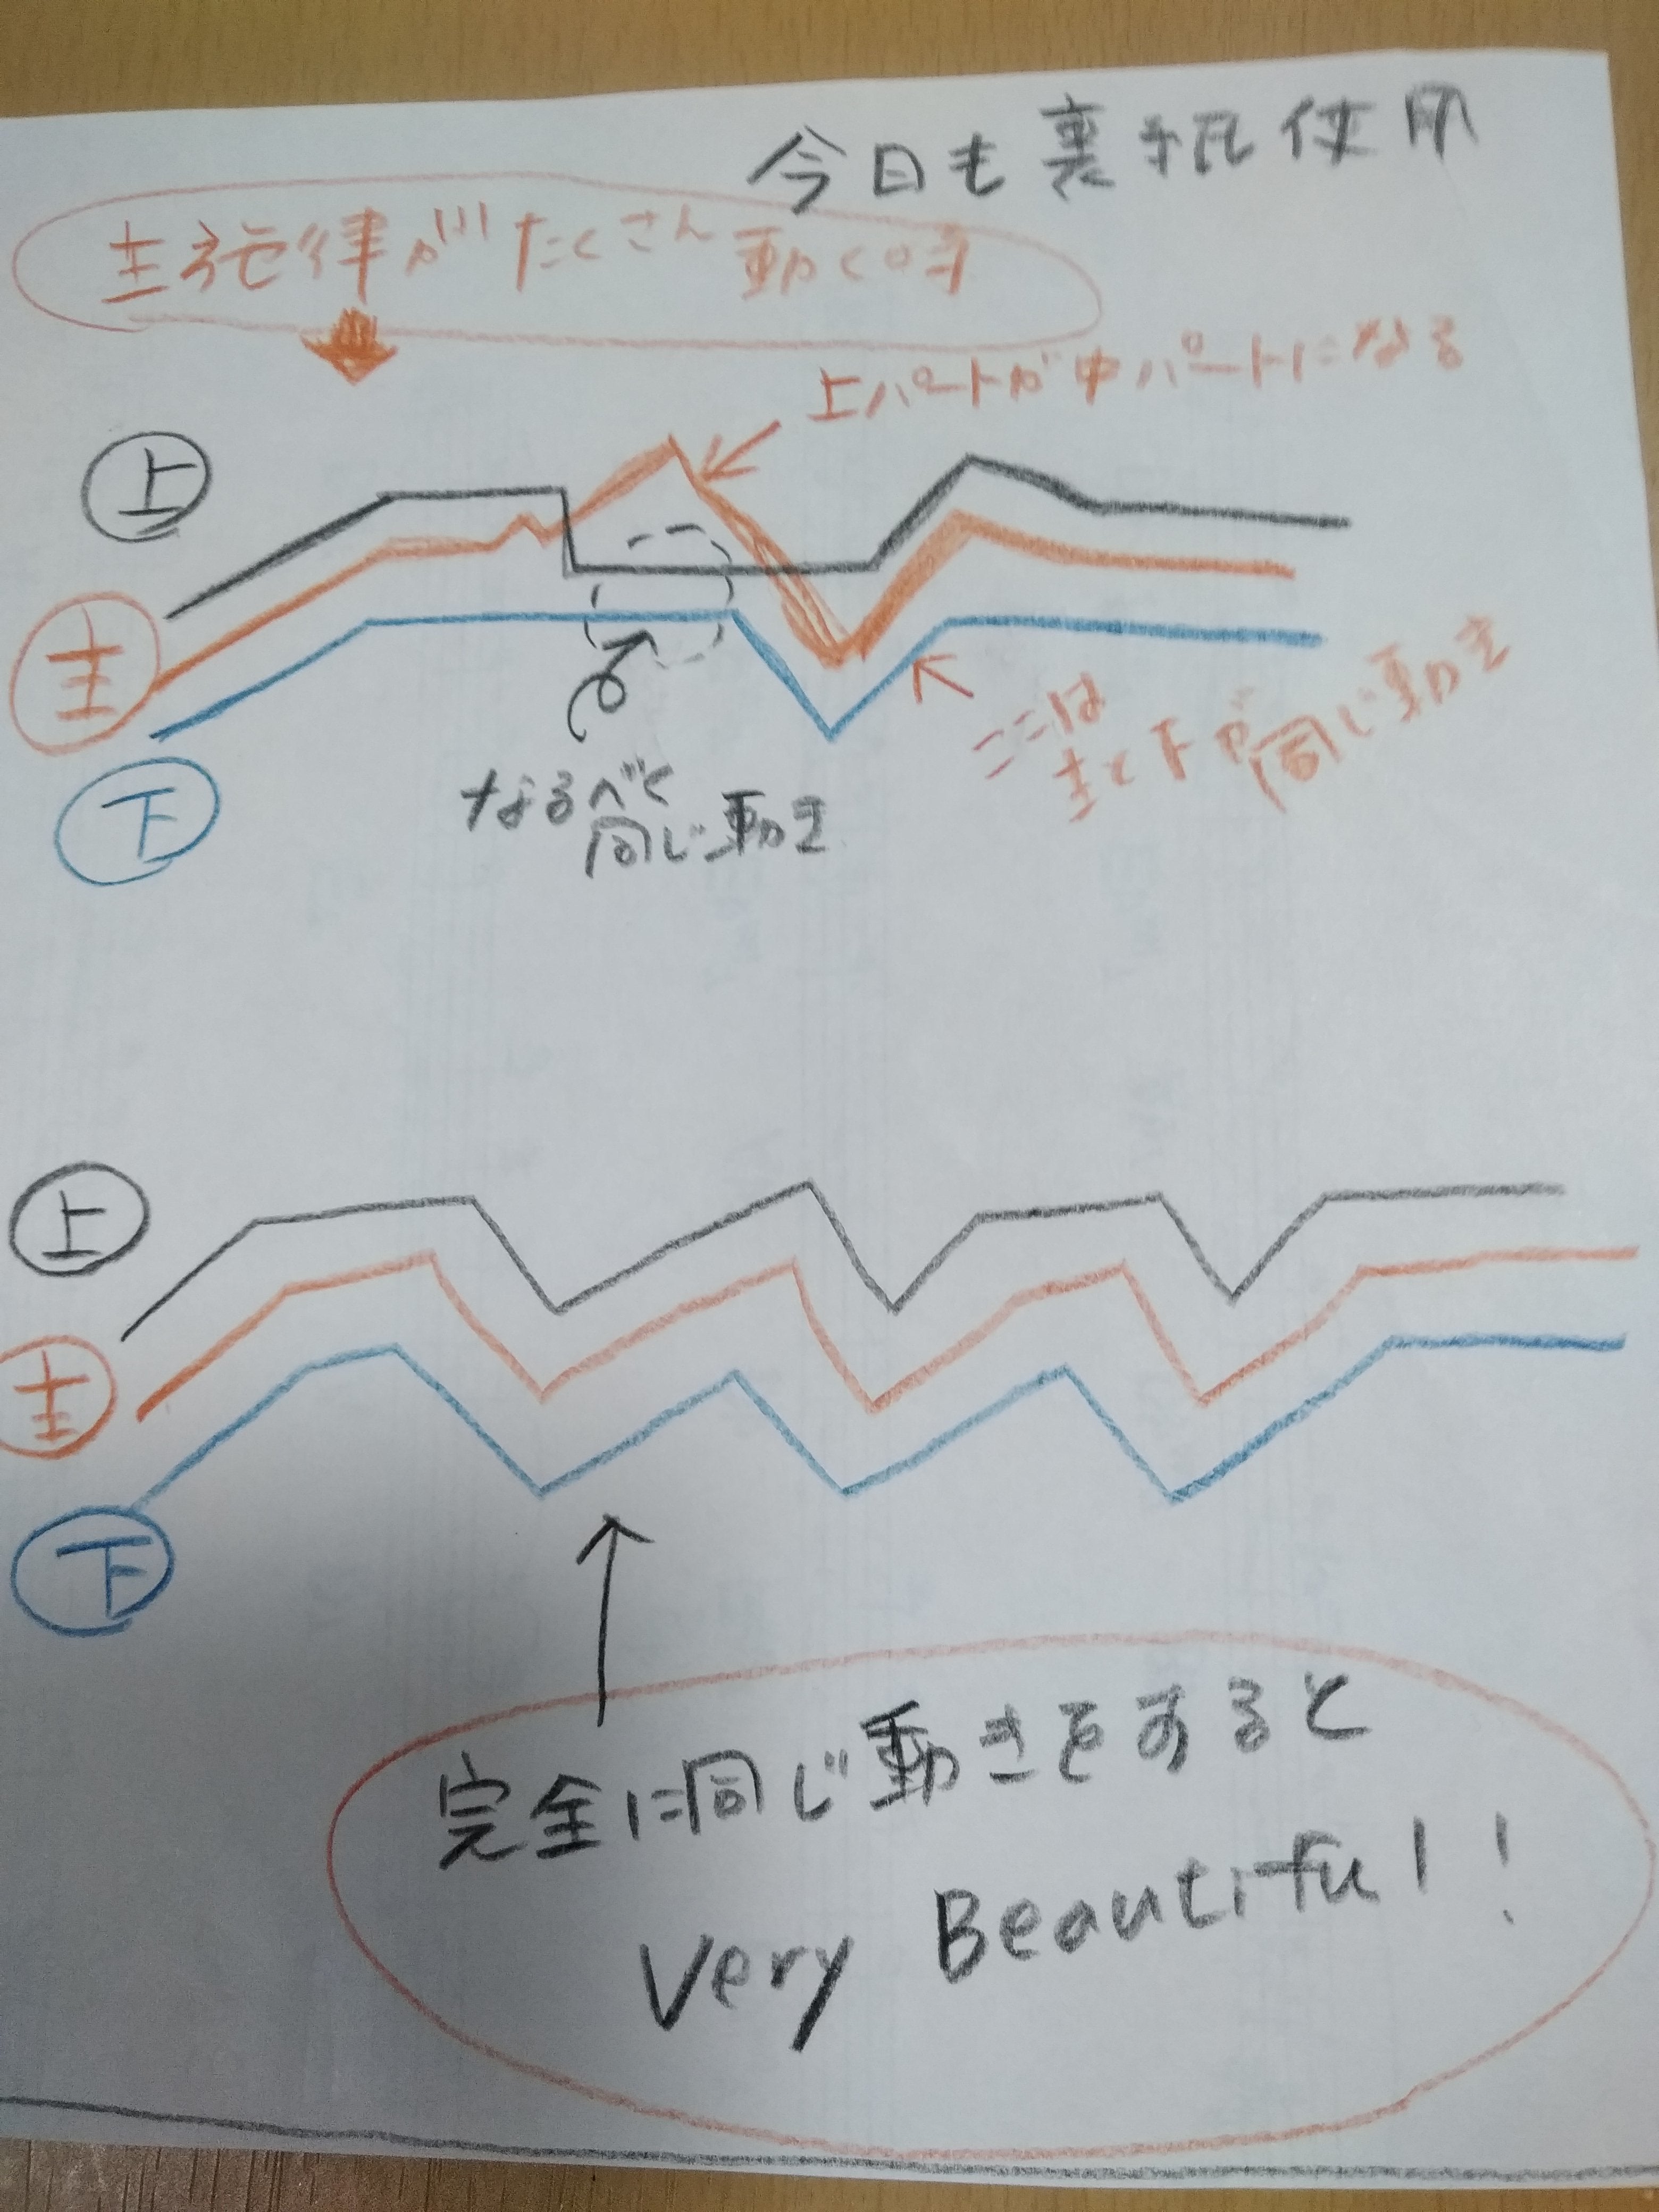 今日も裏紙使用
主旋律がたくさん動く時
上パートが中パートになる
上
主
下
なるべく
同じ動き
ここは
主と下が同じ動き
上
主
下
完全に同じ動きをすると
Very Beautiful!